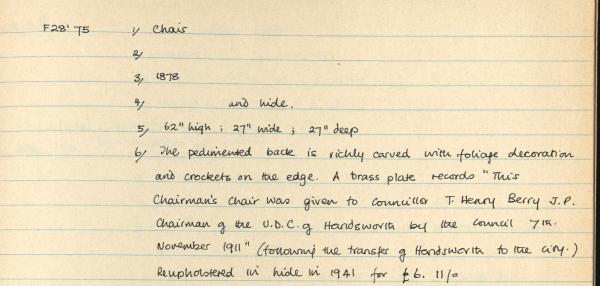 F28' 75 1/ Chair
2/
3, 1878
4/ and hide.
5/ 62" high ; 27" wide ; 27" deep
6/ The pedimented back is richly carved with foliage decoration
and crockets on the edge. A brass plate records "This
Chairman's Chair was given to Councillor T Henry Berry J.P.
Chairman of the U.D.C. of Handsworth by the Council 7th.
November 1911" (following the transfer of Handsworth to the city.)
Reupholstered in hide in 1941 for £6. 11/=